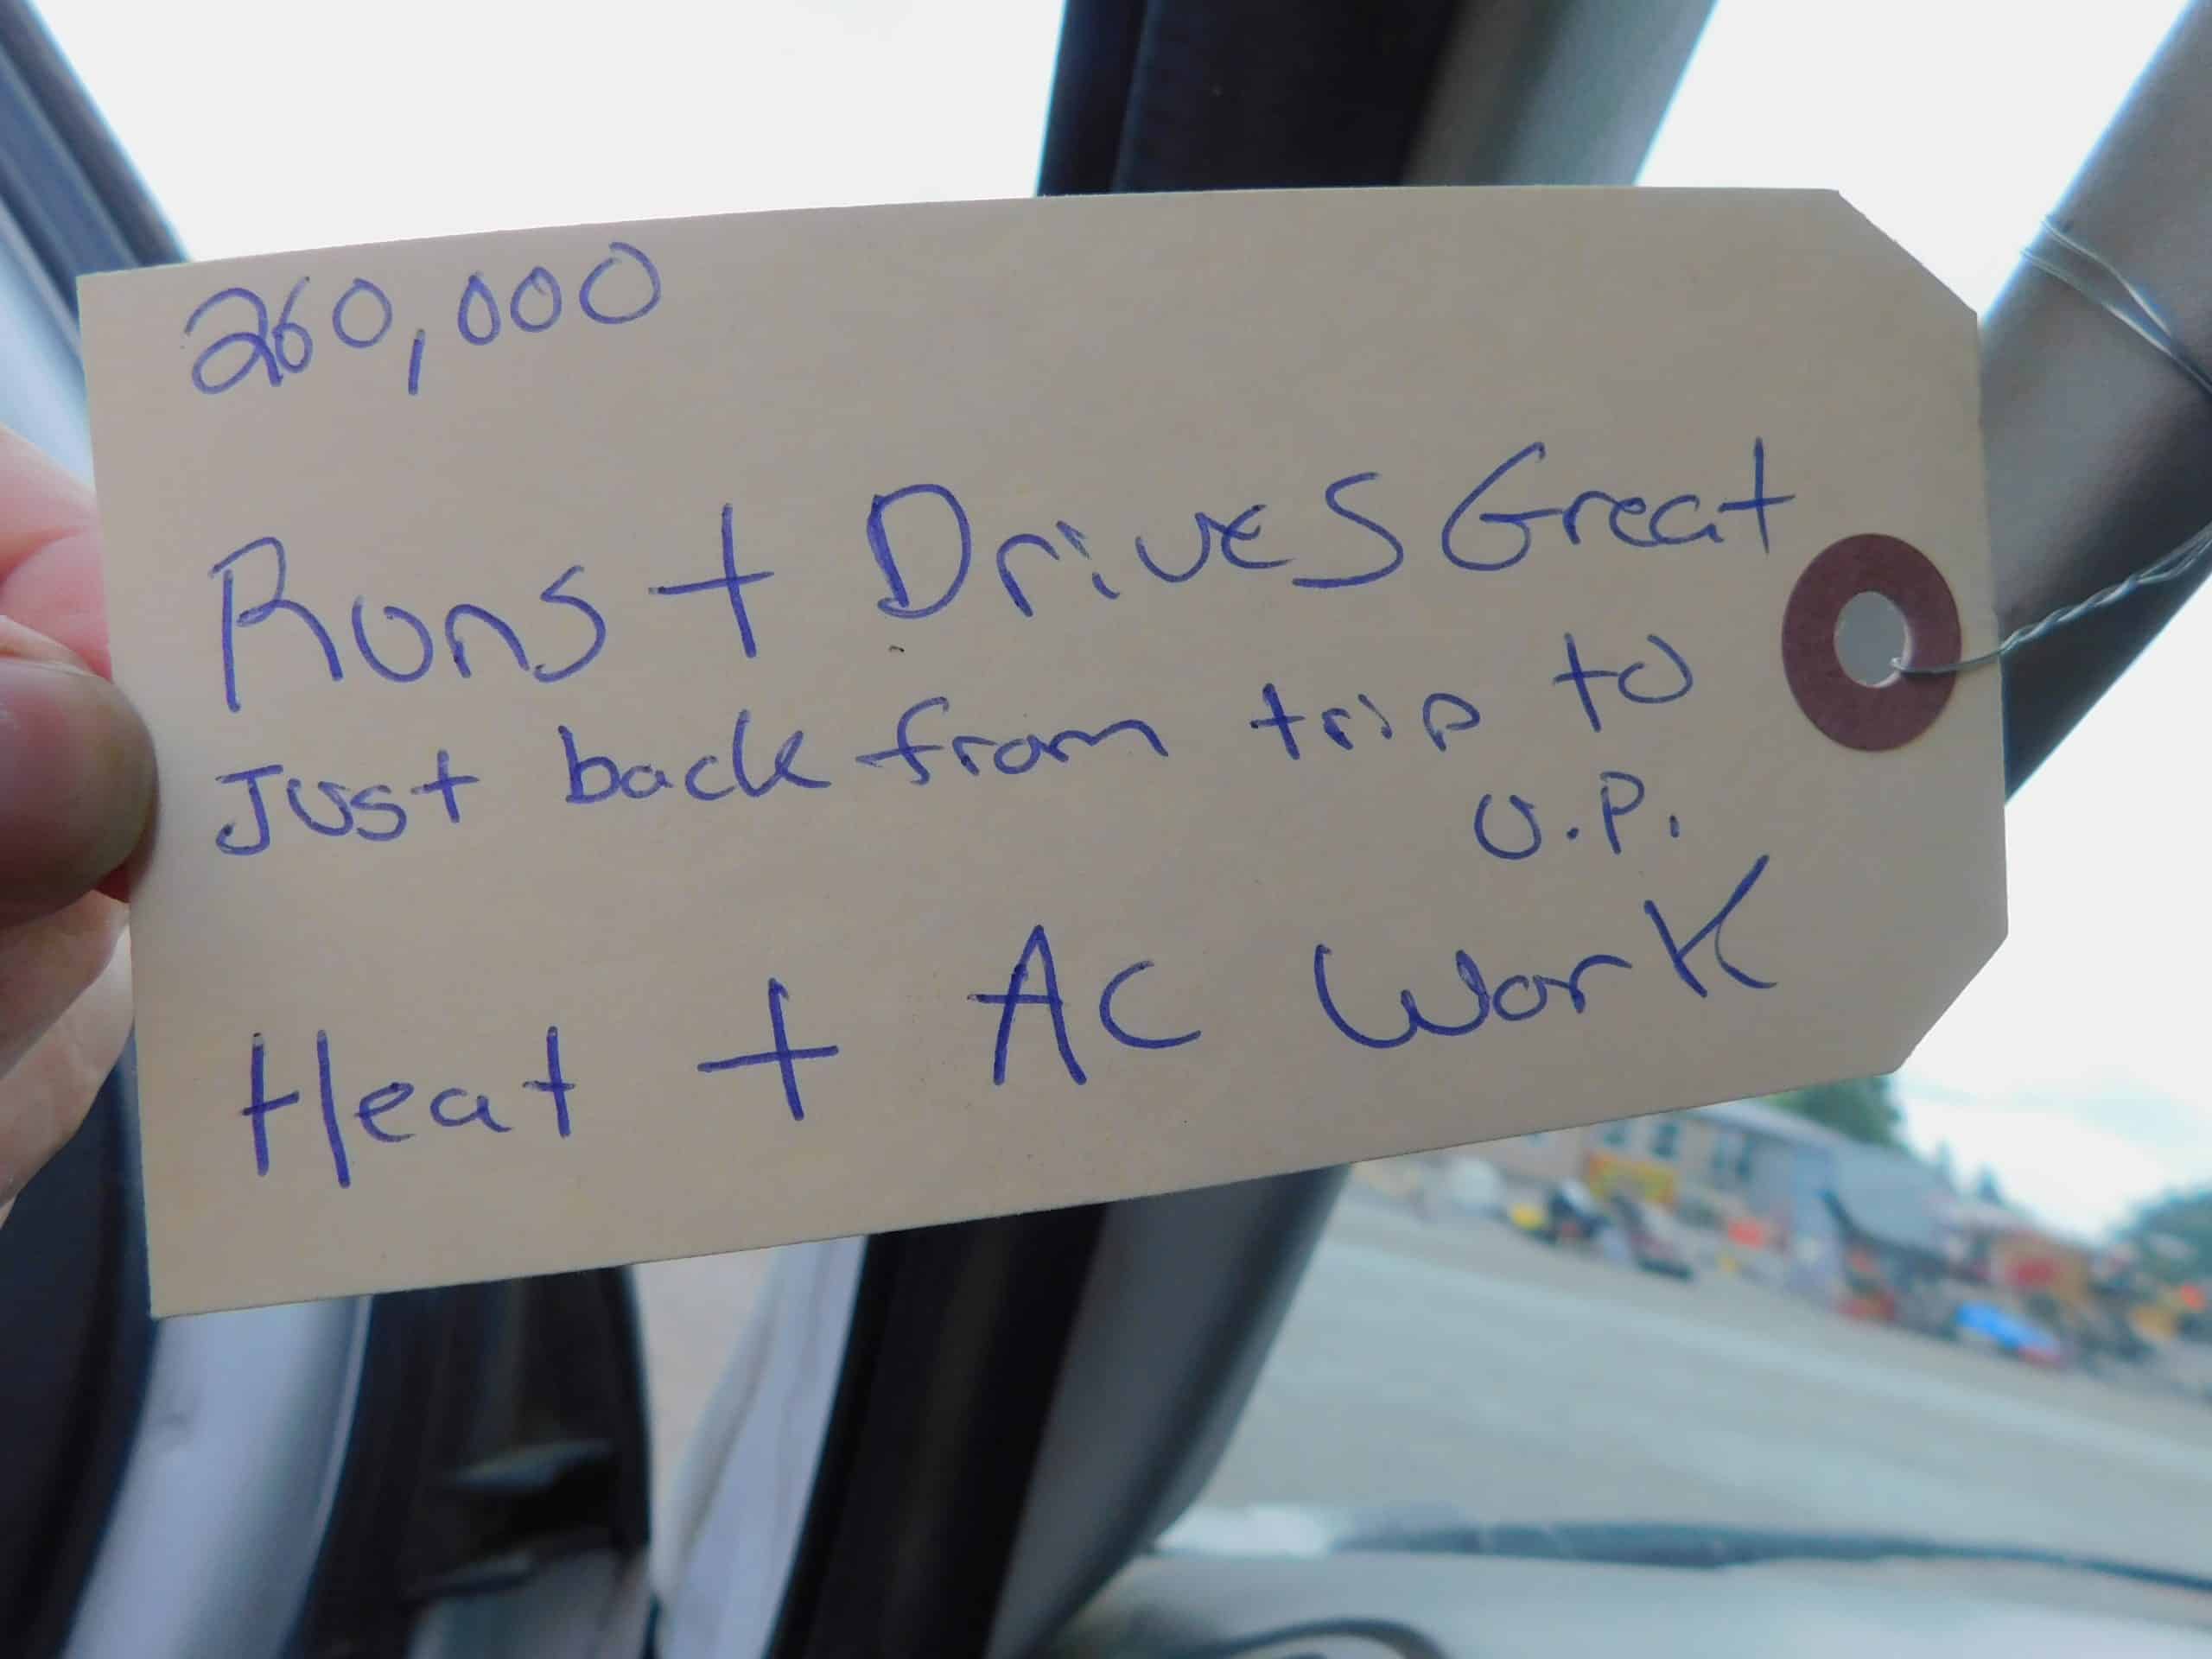 260,000
Runs + Drives Great
Just back from trip to
U.P.
Heat + AC Work